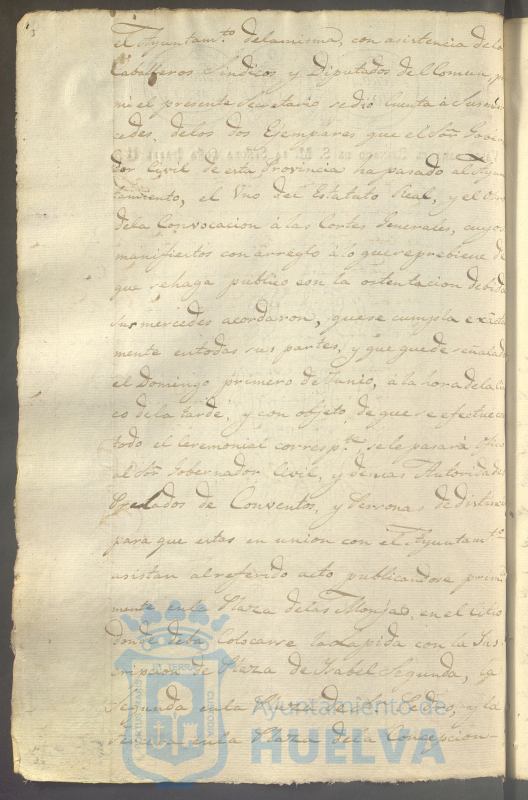 el Ayuntam.to dela misma, con asistencia dela
Caballeros Sindicos y Diputados del Comun, p
mi el presente Secretario se dió Cuenta á Sus mer
cedes, delos dos Exemplares que el Sor. Gover
dor Civil de esta Provincia ha pasado al Ayun
tamiento, el Vno del Estatuto Real, y el Otro
dela Convocacion á las Cortes Generales, cuyos
manifiestos con arreglo á lo que reprebiene de
que se haga publico con la ostentacion debida
Sus mercedes acordaron, que se cumpla exacta
mente en todas sus partes, y que quede señalado
el Domingo primero de Junio, á la hora de la Cin
co de la tarde, y con objeto de que se efectue con
todo el Ceremonial corresp.te se le pasará Oficio
al Sor. Gobernador Civil, y demas Autoridades
Prelados de Conventos, y Personas de distincn.
para que estas en union con el Ayuntam.to
asistan al referido acto publicandose prime
mente en la Plaza delas Monjas, en el Citio
donde debe Colocarse la Lapida con la Ins
cripcion de Plaza de Isabel Segunda, la
Segunda en la Plaza de Sn. Pedro, y la
tercera en la Plaza dela Concepcion
Ayuntamiento de
HUELVA